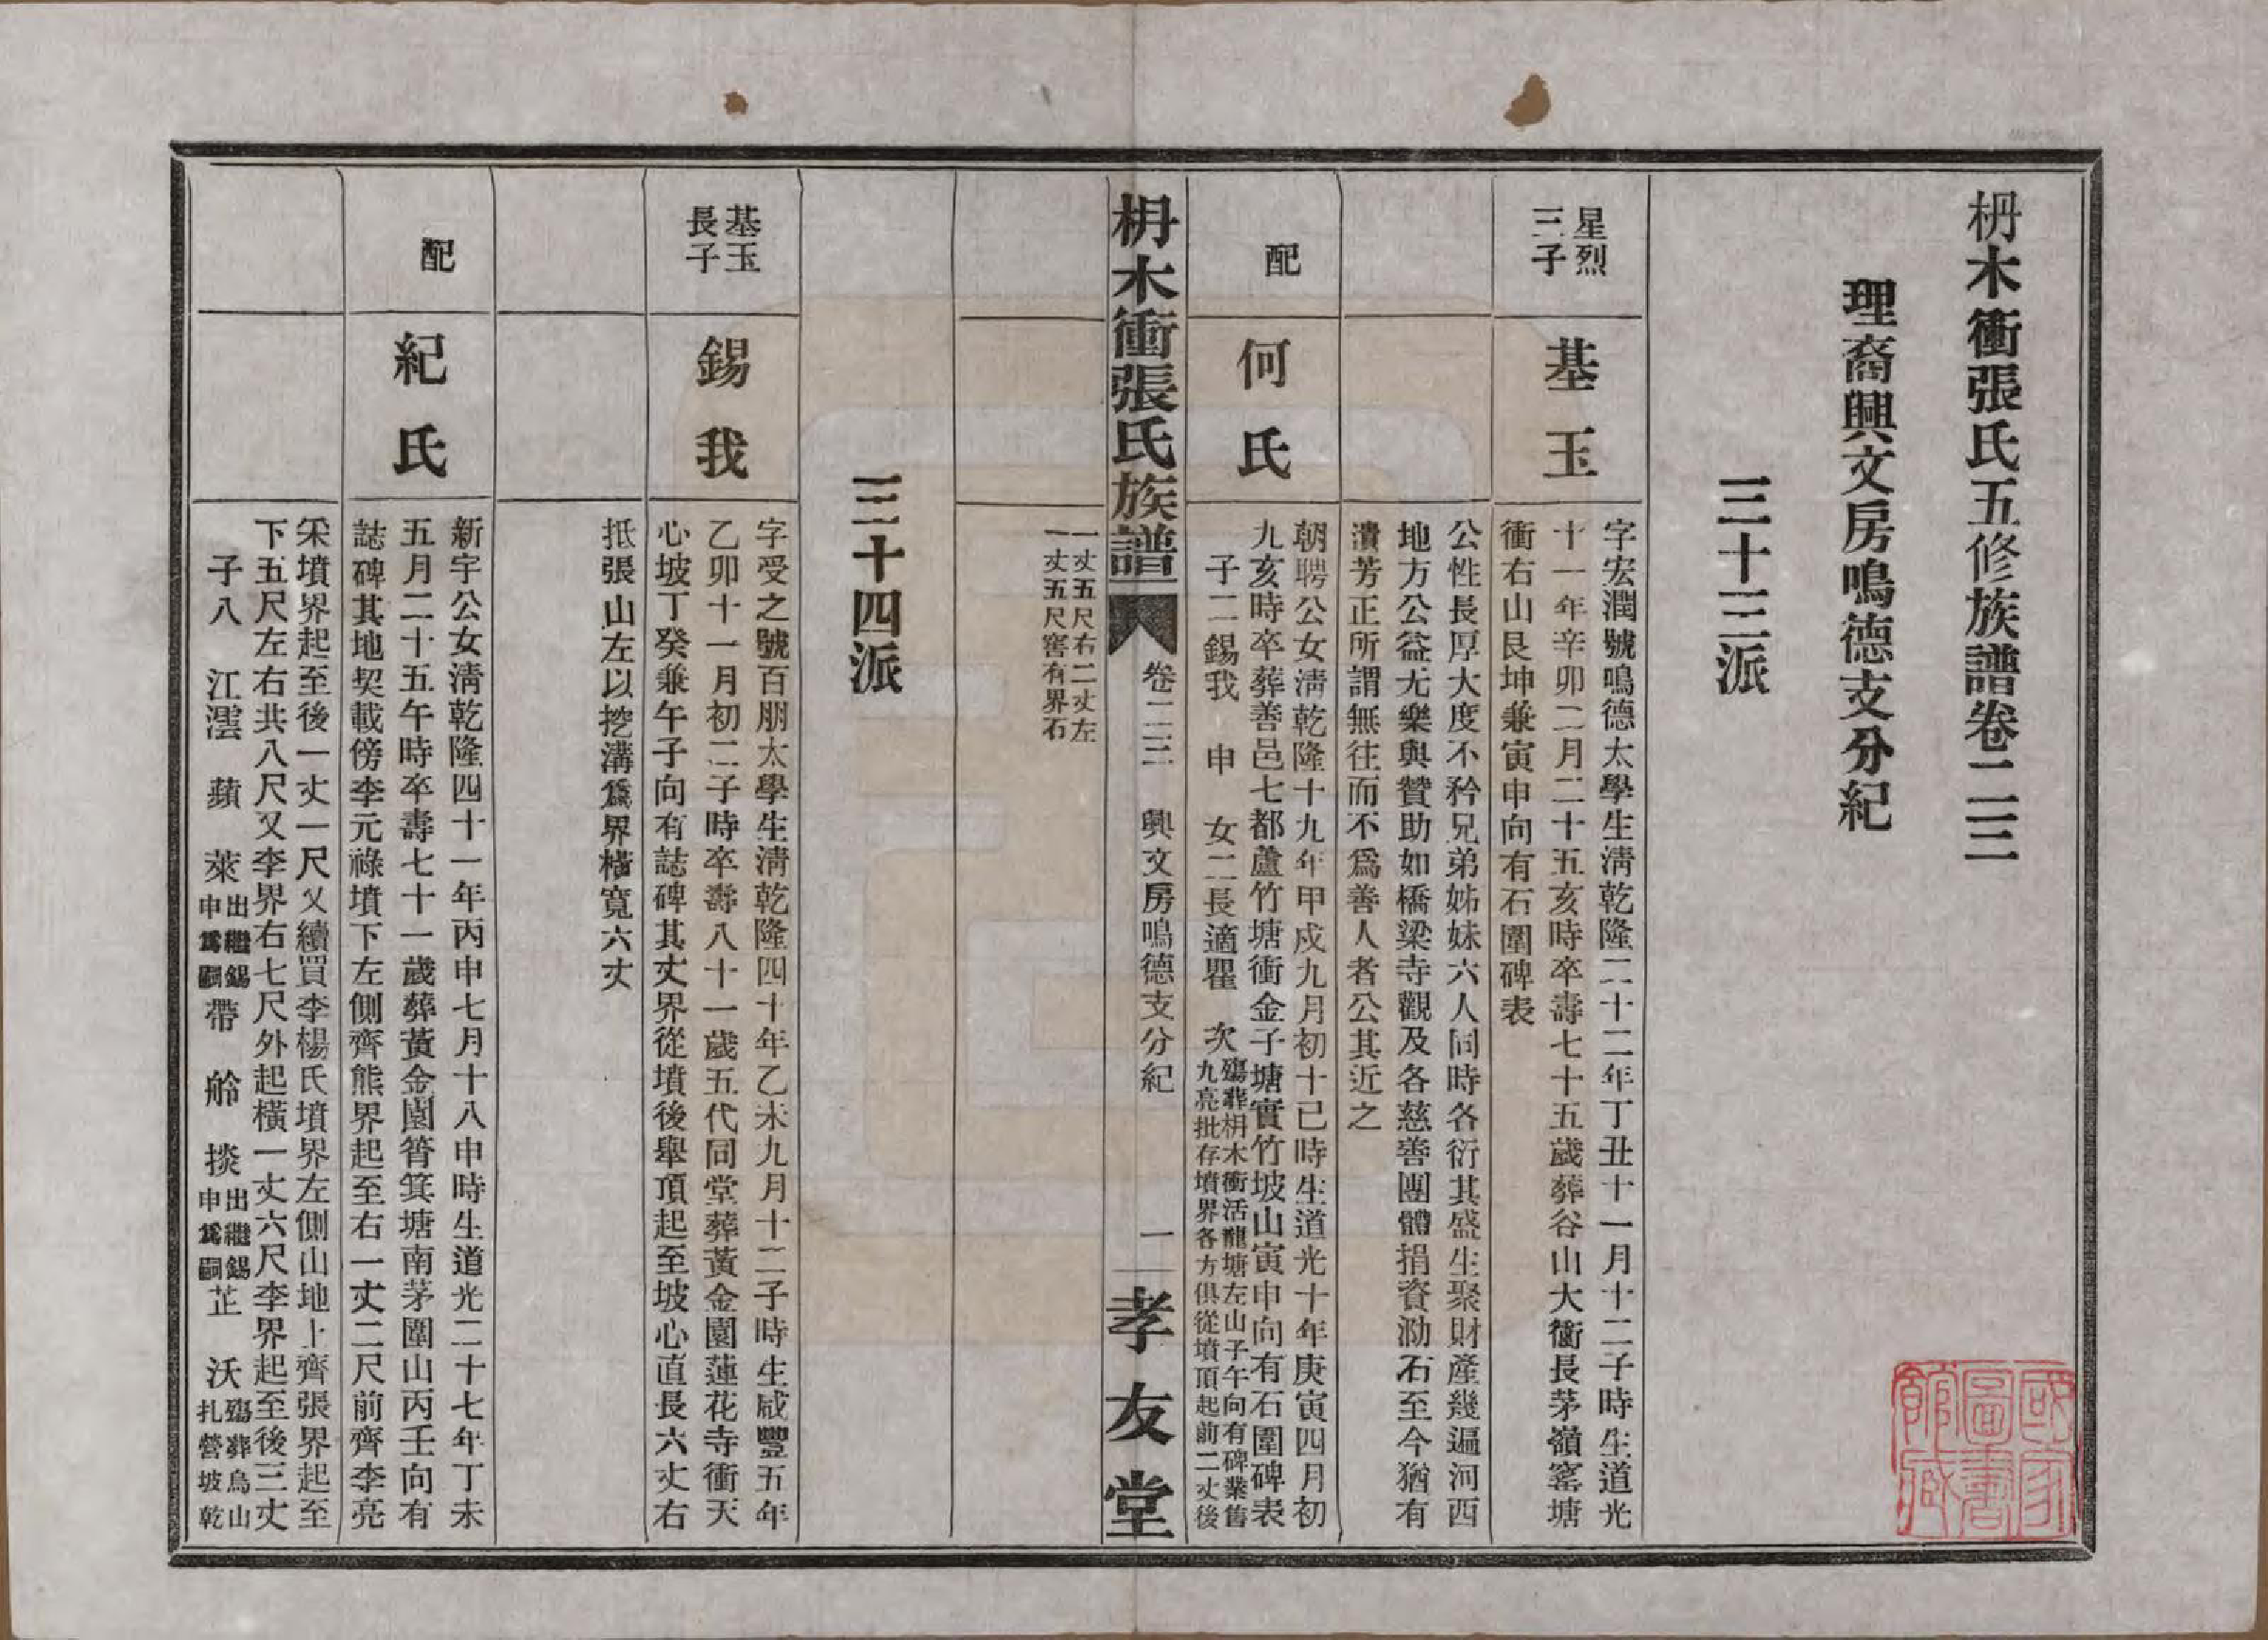 枬木衝張氏五修族譜卷二三
理裔興文房鳴德支分紀
三十三派
星烈
三子
基玉
字宏潤號鳴德太學生淸乾隆二十二年丁丑十一月十二子時生道光
十一年辛卯二月二十五亥時卒壽七十五歲葬谷山大衝長茅嶺窰塘
衝右山艮坤兼寅申向有石圍碑表
公性長厚大度不矜兄弟姊妹六人同時各衍其盛生聚財產幾遍河西
地方公益尤樂與贊助如橋梁寺觀及各慈善團體捐資泐石至今猶有
潰芳正所謂無往而不爲善人者公其近之
配
何氏
朝聘公女淸乾隆十九年甲戌九月初十巳時生道光十年庚寅四月初
九亥時卒葬善邑七都蘆竹塘衝金子塘實竹坡山寅申向有石圍碑表
子二錫我 申 女二長適瞿 次
殤葬枬木衝活龍塘左山子午向有碑業舊
九亮批存墳界各方俱從墳頂起前二丈後
枬木衝張氏族譜
卷二三 興文房鳴德支分紀
一
孝友堂
一丈五尺右二丈左
一丈五尺窖有界石
三十四派
基玉
長子
錫我
字受之號百朋太學生淸乾隆四十年乙未九月十二子時生咸豐五年
乙卯十一月初二子時卒壽八十一歲五代同堂葬黃金園蓮花寺衝天
心坡丁癸兼午子向有誌碑其丈界從墳後舉頂起至坡心直長六丈右
抵張山左以挖溝爲界橫寬六丈
配
紀氏
新宇公女淸乾隆四十一年丙申七月十八申時生道光二十七年丁未
五月二十五午時卒壽七十一歲葬黃金園筲箕塘南茅圍山丙壬向有
誌碑其地契載傍李元祿墳下左側齊熊界起至右一丈二尺前齊李亮
宷墳界起至後一丈一尺又續買李楊氏墳界左側山地上齊張界起至
下五尺左右共八尺又李界右七尺外起橫一丈六尺李界起至後三丈
子八 江澐 蘋 萊
出繼錫
申爲嗣
帶 舲 掞
出繼錫
申爲嗣
芷 沃
殤葬烏山
扎營坡乾
國家
圖書
館藏